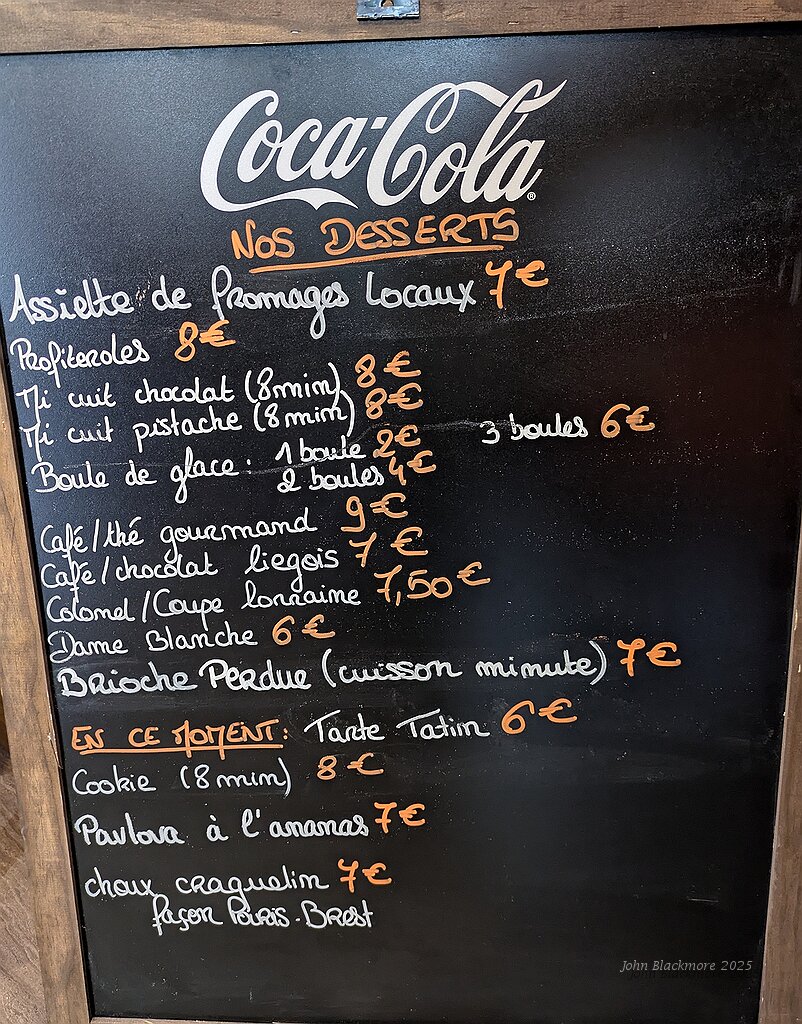 Coca-Cola®
NOS DESSERTS
Assiette de fromages Locaux 7€
Profiteroles 8€
Mi cuit chocolat (8min) 8€
Mi cuit pistache (8min) 8€
Boule de glace: 1 boule 2€ 3 boules 6€
2 boules 4€
Café/thé gourmand 9€
Café/chocolat liegois 7€
Colonel/Coupe lorraine 7,50€
Dame Blanche 6€
Brioche Perdue (cuisson minute) 7€
EN CE MOMENT: Tarte Tatin 6€
Cookie (8min) 8€
Pavlova à l'ananas 7€
choux craquelin 7€
façon Paris-Brest
John Blackmore 2025